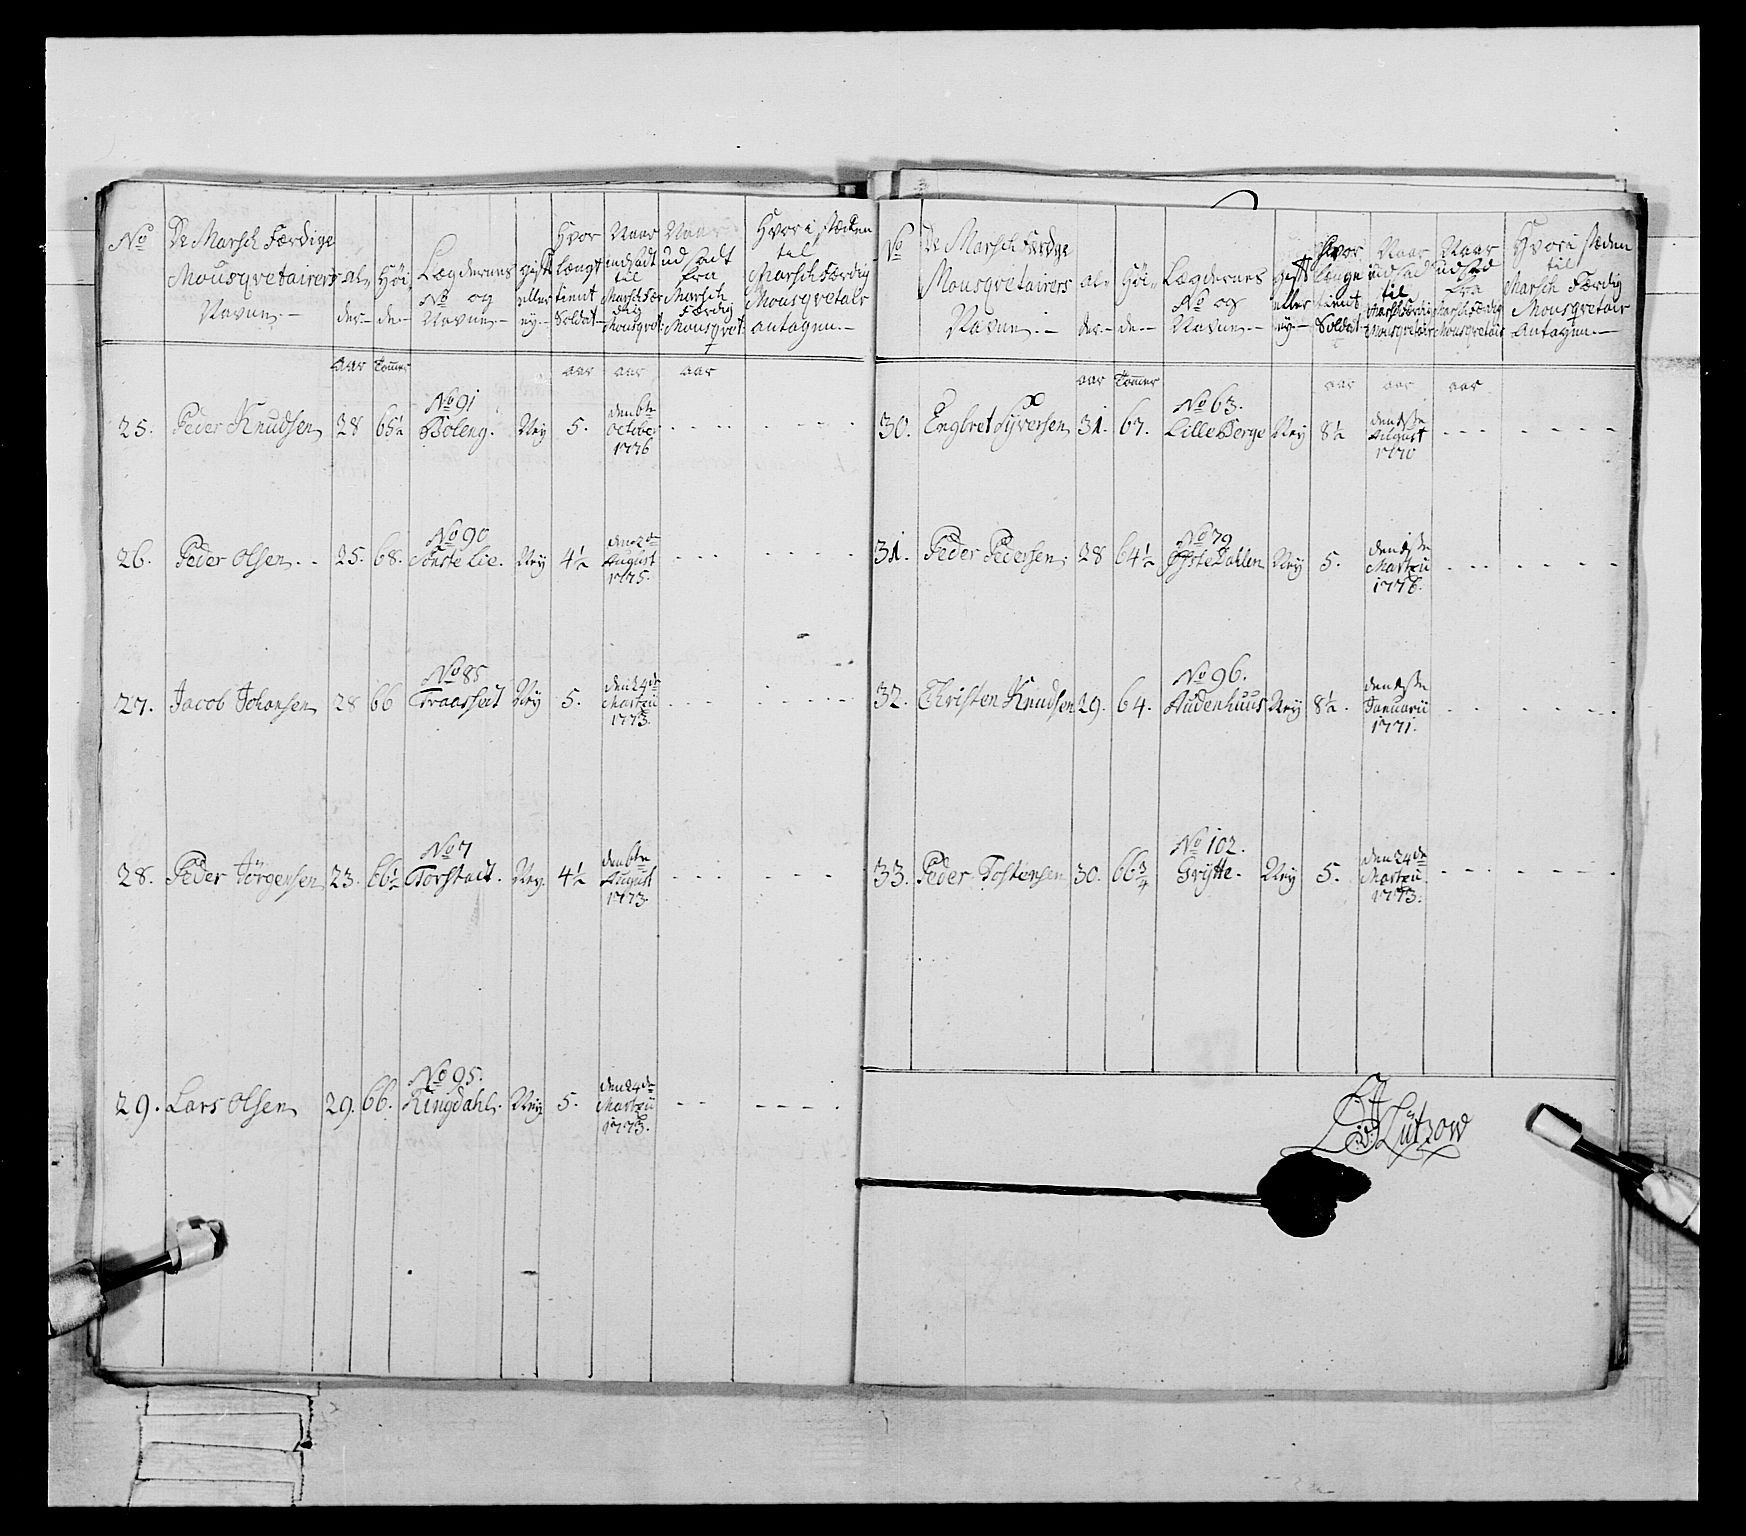 No
De Marsch Færdige
Mousqvetairers
Navne.
Al-
der
Höi-
de
Lægdernes
No og
Navne
gift
eller
ey
Hvor
længe
tient
Soldat
Naar
indsadt
til
Marsch Fær
dig
Mousqvet
Naar
udsadt
fra
Marsch
Færdig
Mousqvet
Hvor i stæden
til
Marsch Færdig
Mousqvetair
antagen
aar Tommer aar aar aar
25. Peder Knudsen 28 65½ No 91 Boleng. Ney 5. den 6te October 1776
26. Peder Olsen 25. 68. No 90 Lie. Ney 4½ den 2de August 1775.
27. Jacob Johansen 28 66 No 85 Ney 5. den 24de Martzii 1773.
28. Peder Jörgensen 23. 66½ No 7 Torstait. Ney. 4½ den 6te August 1773.
29. Lars Olsen 29. 66. No 95. Ringdahl. Ney. 5. den 24de Martzii 1773.
No
De Marsch Færdge
Mousqvetairers
Navne.
al-
der
Höi-
de
Lægdernes
No og
Navne
gift
eller
ey
Hvor
længe
tient
Soldat
Naar
indsad
til
Marsch Færdig
Mousqvetair
Naar
udsad
fra
Marsch Færdig
Mousqvetair
Hvor i stæden
til
Marsch Færdig
Mousqvetair
Antagen
aar Tommer aar aar aar
30. Englvet Syversen 31. 67. No 63. Lille Berge Ney 8½ den 1ste August 1770
31. Peder Pedersen 28 64½ No 79 Dahlen Ney 5. den 1ste Martzii 1776.
32. Christen Knudsen 29. 64. No 96. Audenhuus Ney 8½. den 1ste Januarii 1771.
33. Peder Tostensen 30. 66¾ No 102. Grÿtte. Ney 5. den 24de Martzii 1773.
Lützow